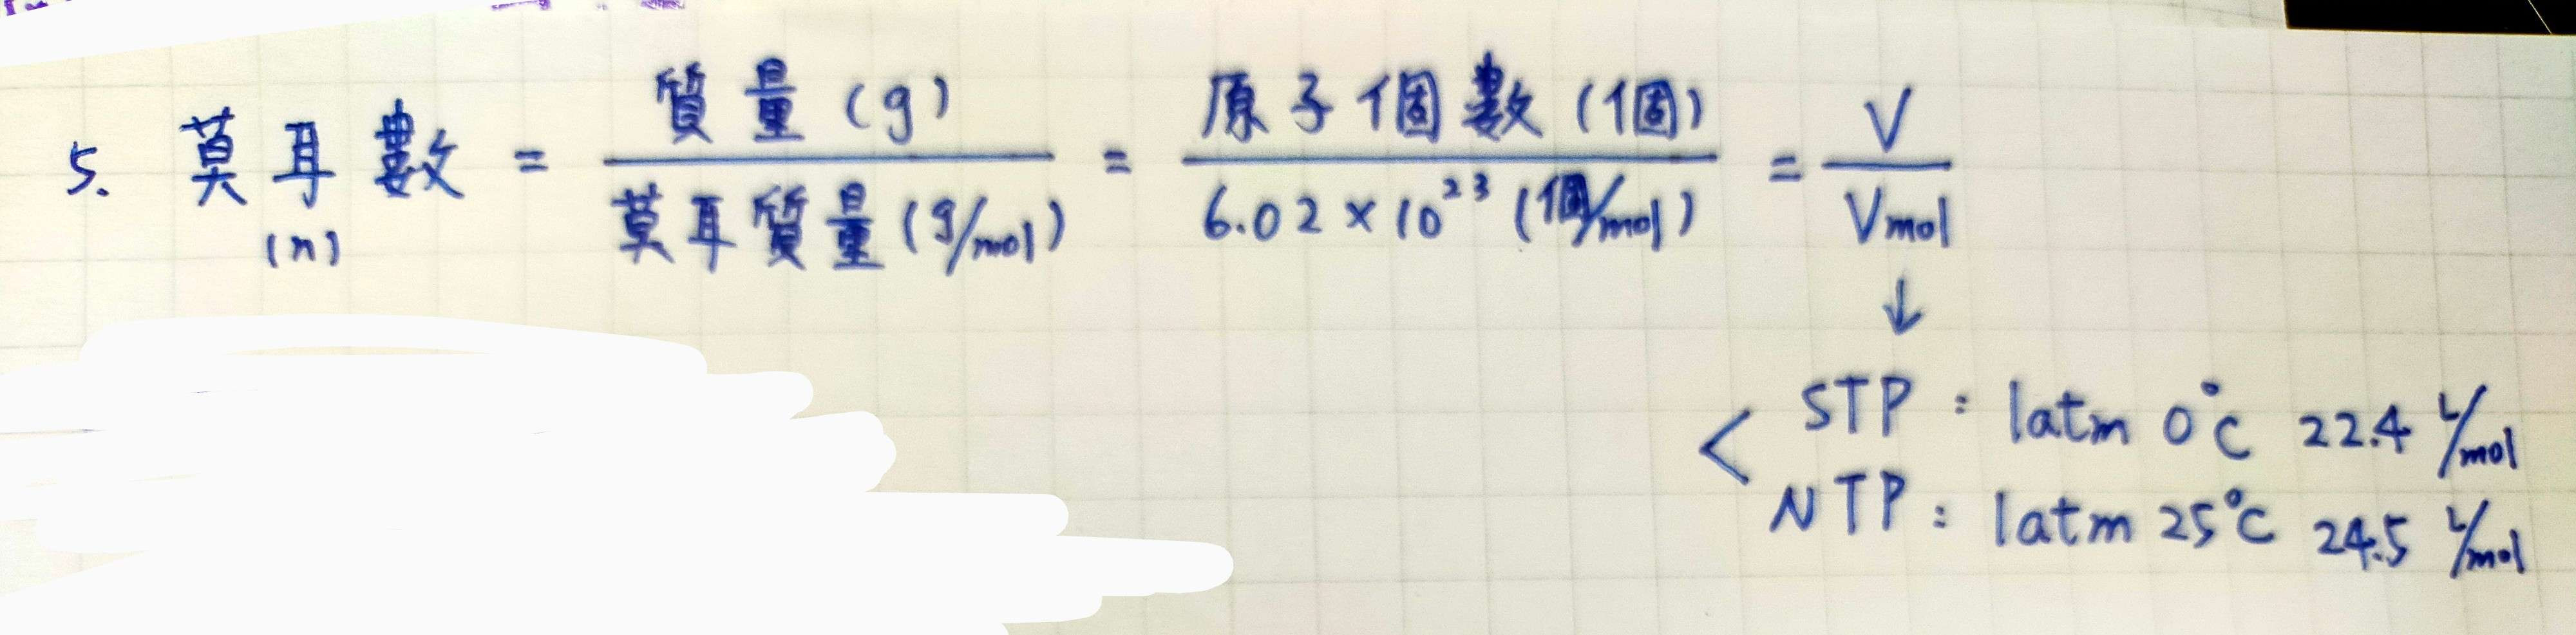 5. 莫耳數 (n) = 質量(g) / 莫耳質量(g/mol) = 原子個數(個) / 6.02×10²³(個/mol) = V / Vmol
↓
< STP : 1atm 0°C 22.4 L/mol
NTP : 1atm 25°C 24.5 L/mol